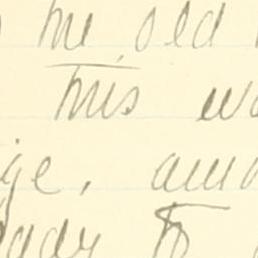 the old
This wa
ge, and
ady to